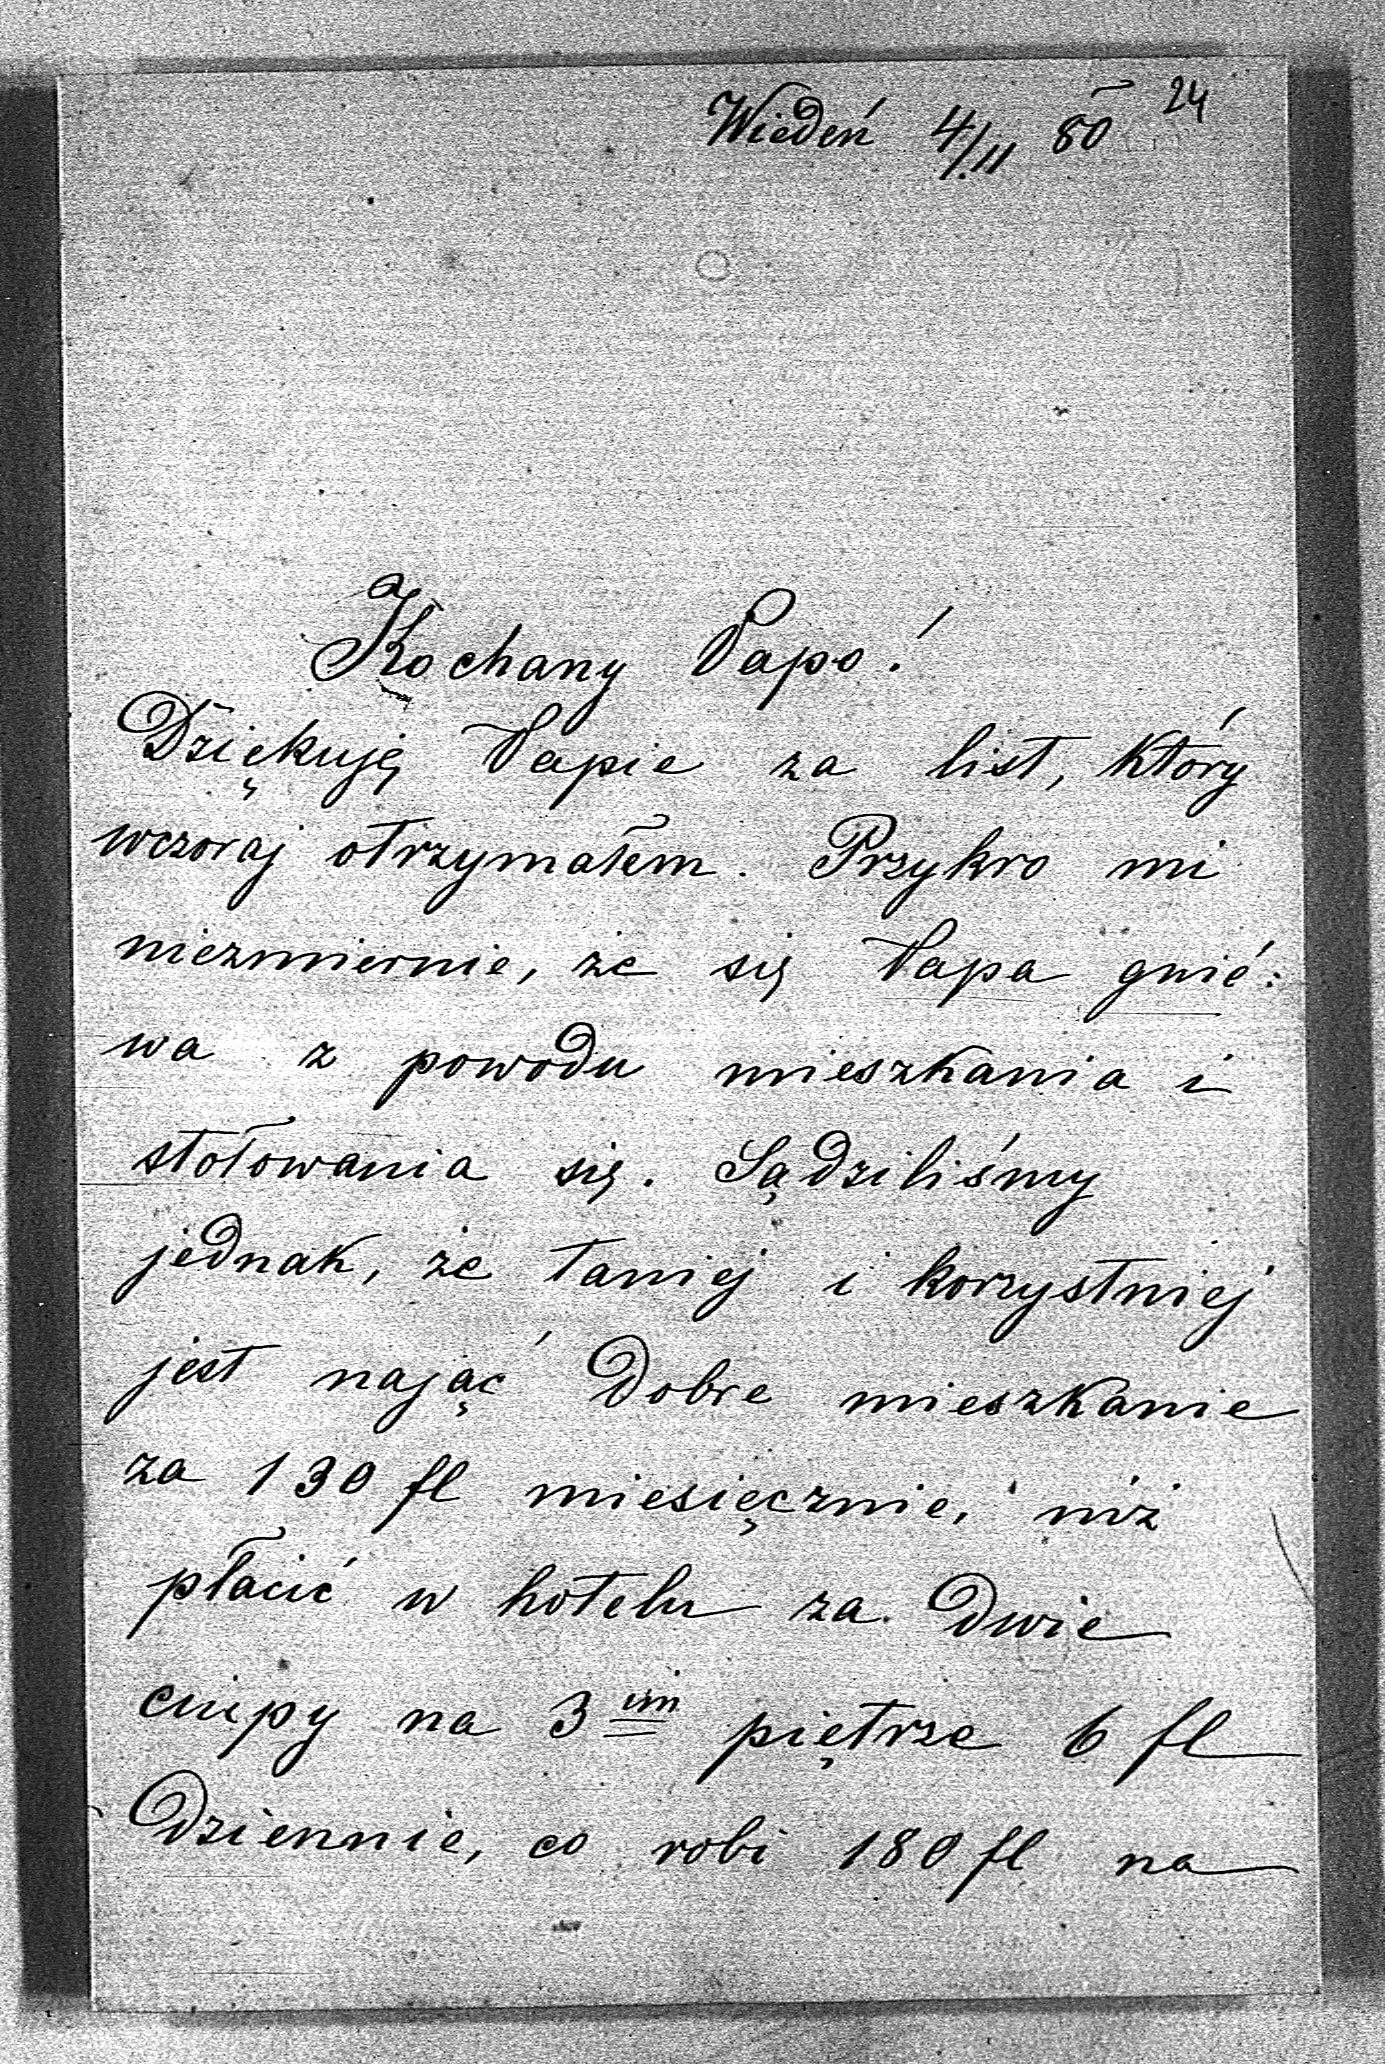 24
Wiedeń 4/11 80
Kochany Papo!
Dziękuję Papie za list, który
wczoraj otrzymałem. Przykro mi
niezmiernie, że się Papa gnié:
wa z powodu mieszkania i
stołowania się. Sądziliśmy
jednak, że taniej i korzystniej
jest nająć dobre mieszkanie
za 130 fl miesięcznie, niż
płacić w hotelu za dwie
ciupy na 3im piętrze 6 fl
dziennie, co robi 180 fl na